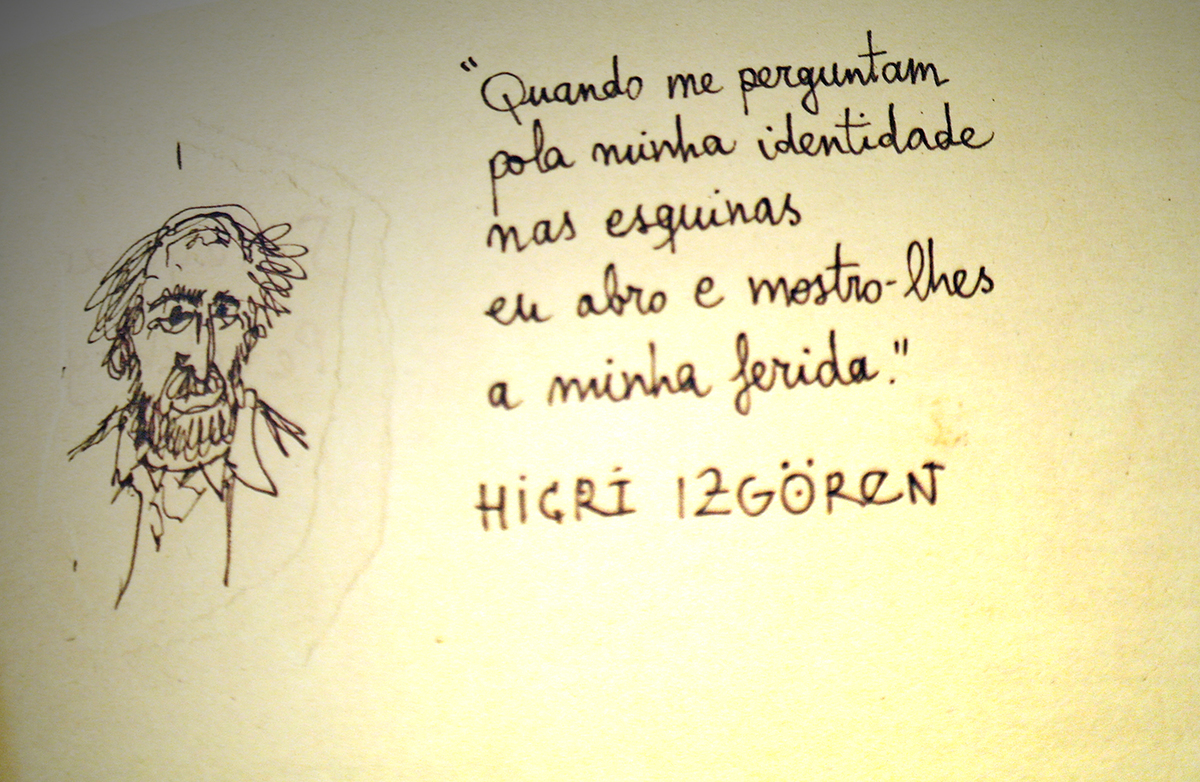 "Quando me perguntam
pola minha identidade
nas esquinas
eu abro e mostro-lhes
a minha ferida."
HİÇRİ IZGÖREN